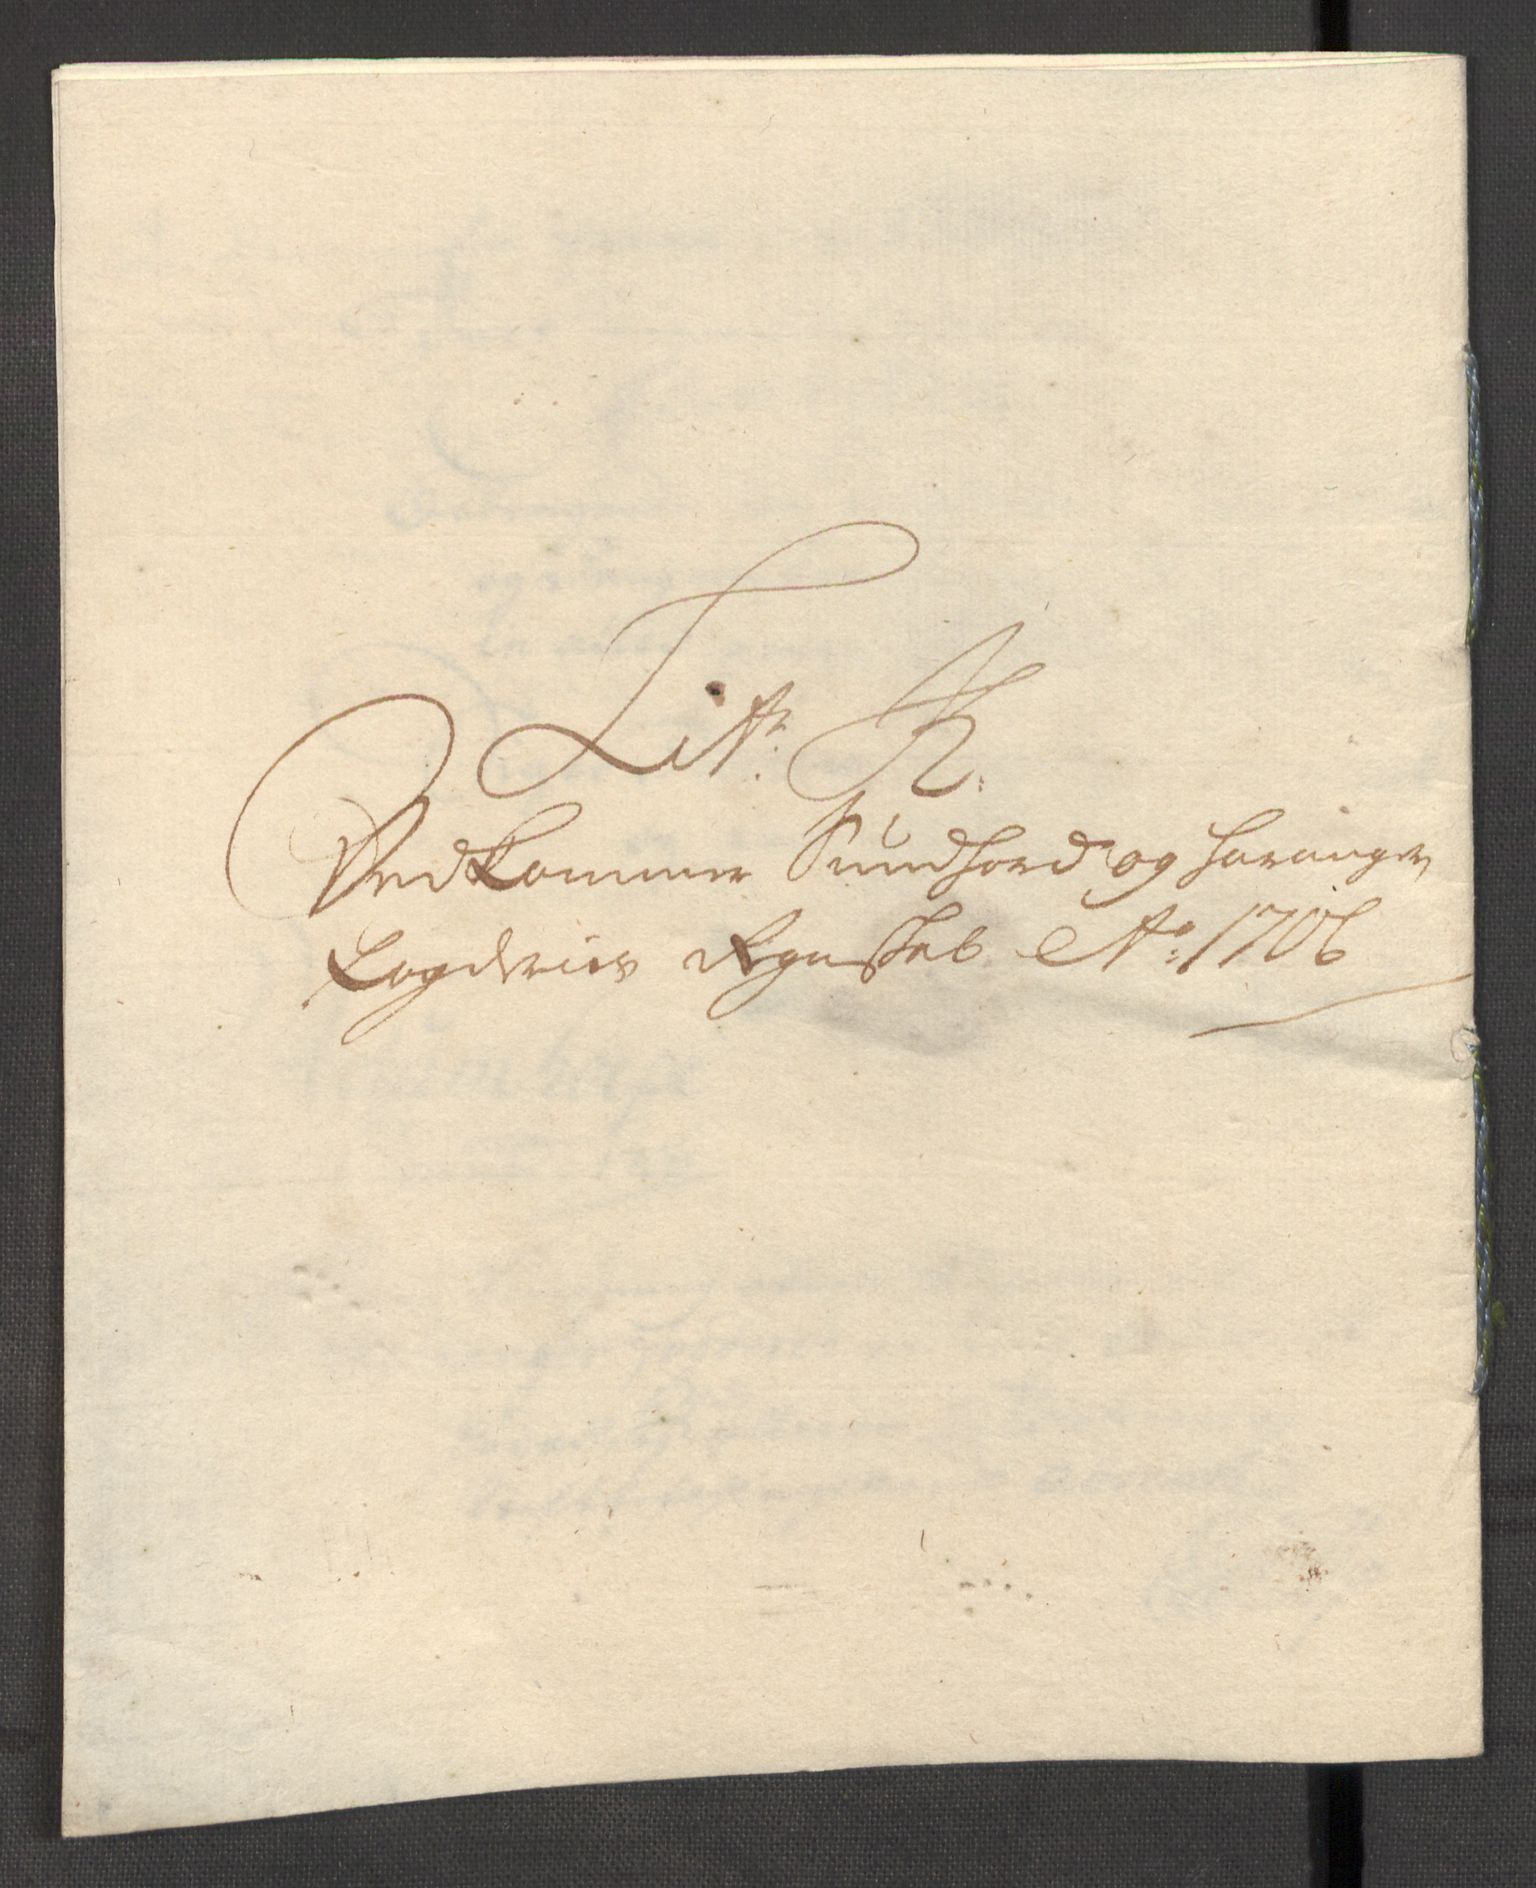 Litr: K:
Vedkommer Sundhord og Haranger
Fogderies Regnskab Ao: 1706